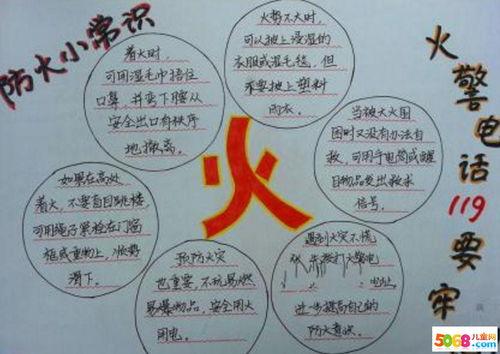 防火小常识
着火时，
可用湿毛巾捂住
口鼻，并弯下腰从
安全出口有秩序
地撤离。
火势不大时，
可以披上浸湿的
衣服或湿毛毯，但
不要披上塑料
雨衣。
当被大火围
困时又没有办法自
救，可用手电筒或醒
目物品发出求救
信号。
火
如果在高处
着火，不要盲目跳楼，
可用绳子紧栓在门窗
框或重物上，顺势
滑下。
预防火灾
也重要，不玩易燃
易爆物品，安全用火
用电。
遇到火灾不慌
先拨打火警电
地址。
进一步提高自己的
防火意识。
火警电话119要牢
5068儿童网
.com